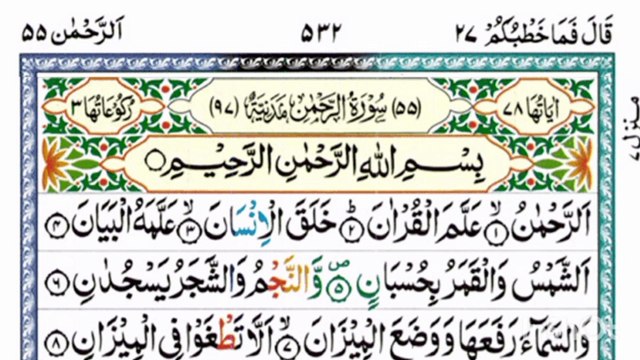 قَالَ فَمَا خَطْبُكُمْ ٢٧ ٥٣٢ اَلرَّحْمٰن ٥٥
اٰيَاتُهَا ٧٨ (٥٥) سُوْرَةُ الرَّحْمٰنِ مَدَنِيَّةٌ (٩٧) رُكُوْعَاتُهَا ٣
بِسْمِ اللّٰهِ الرَّحْمٰنِ الرَّحِيْمِ
اَلرَّحْمٰنُ ۙ﴿١﴾ عَلَّمَ الْقُرْاٰنَ ؕ﴿٢﴾ خَلَقَ الْاِنْسَانَ ۙ﴿٣﴾ عَلَّمَهُ الْبَيَانَ ﴿٤﴾
اَلشَّمْسُ وَالْقَمَرُ بِحُسْبَانٍ ۪﴿٥﴾ وَّالنَّجْمُ وَالشَّجَرُ يَسْجُدٰنِ ﴿٦﴾
وَالسَّمَآءَ رَفَعَهَا وَوَضَعَ الْمِيْزَانَ ۙ﴿٧﴾ اَلَّا تَطْغَوْا فِى الْمِيْزَانِ ﴿٨﴾
منزل ٧